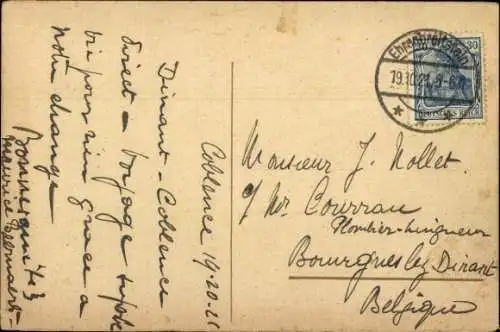 Coblence 19.20.21
Dinant - Coblence
direct - voyage
pour rien grace a
notre change
Bonne ami
Maurice
Ehrenbreitstein
19.10.21
30
DEUTSCHES REICH
Monsieur J. Nollet.
Plombier-Zingueur
Bourgnes lez Dinant
Belgique